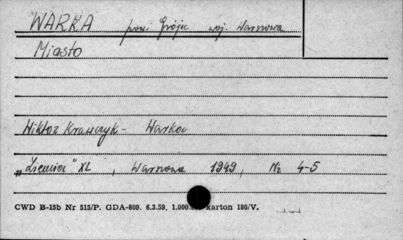 WARKA pow. Grójec woj. Warszawa
Miasto
Wiktor Krawczyk - Warka
"Ziemia" XL, Warszawa 1949, Nr 4-5
CWD B-15b Nr 515/P. GDA-809. 6.3.59. 1.000.000 karton 180/V.